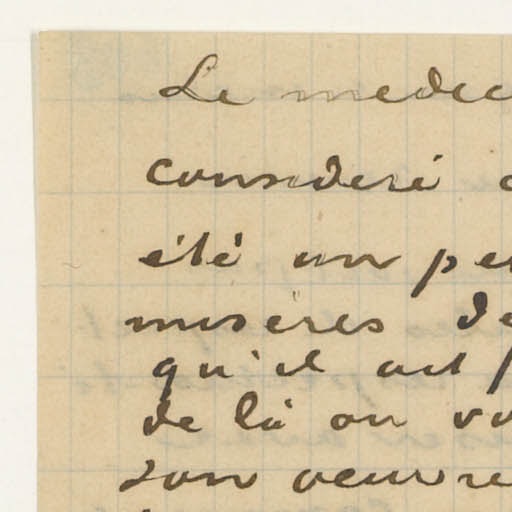 Le medec
considéré c
été un peu
misères de
qu'il ait p
de là on vo
son oeuvre